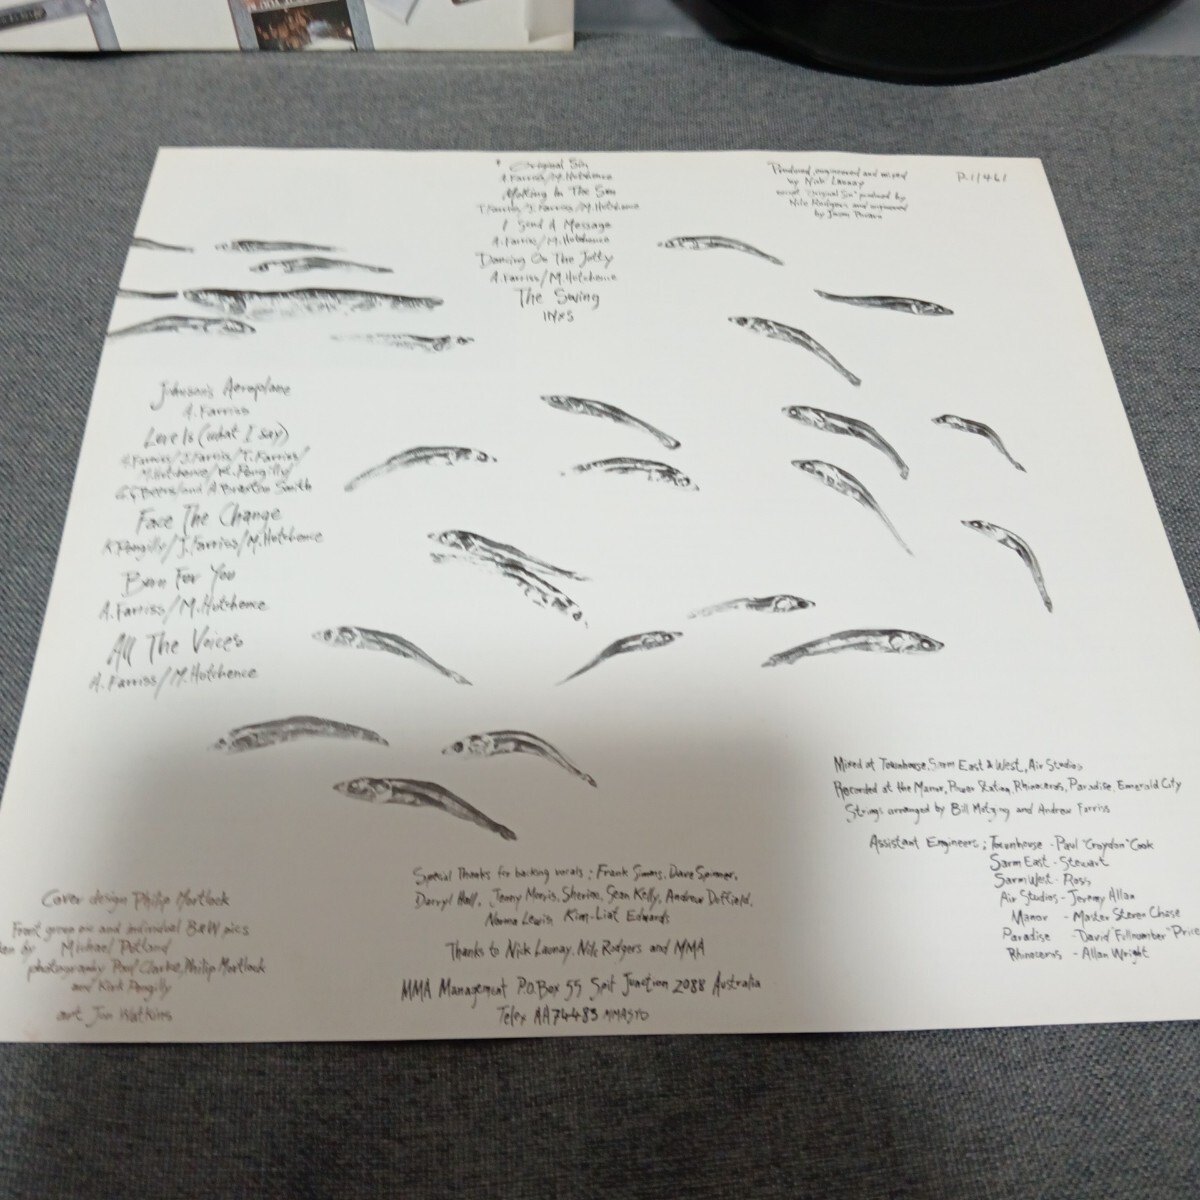 Original Sin
A. Farriss/M. Hutchence
Melting In The Sun
T. Farriss/J. Farriss/M. Hutchence
I Send A Message
A. Farriss/M. Hutchence
Dancing On The Jetty
A. Farriss/M. Hutchence
The Swing
INXS
Produced, engineered and mixed
by Nick Launay
except "Original Sin" produced by
Nile Rodgers and engineered
by Jason
P.1/461
Johnson's Aeroplane
A. Farriss
Love Is (what I say)
A. Farriss/J. Farriss/T. Farriss/
M. Hutchence/K. Pengilly/
G.G. Beers/and A. Braxton Smith
Face The Change
K. Pengilly/J. Farriss/M. Hutchence
Burn For You
A. Farriss/M. Hutchence
All The Voices
A. Farriss/M. Hutchence
Mixed at Townhouse, Sarm East & West, Air Studios
Recorded at the Manor, Power Station, Rhinoceros, Paradise, Emerald City
Strings arranged by Bill and Andrew Farriss
Assistant Engineers; Townhouse - Paul "Croydon" Cook
Sarm East - Stewart
Sarm West - Ross
Air Studios - Jeremy Allan
Manor - Master Steven Chase
Paradise - David "Price
Rhinoceros - Allan Wright
Special Thanks for backing vocals: Frank Simms, Dave Spinner,
Darryl Hall, Jenny Morris, Sherine, Sean Kelly, Andrew Duffield,
Norma Lewis, Kim-Liat Edwards
Thanks to Nick Launay, Nile Rodgers and MMA
MMA Management P.O. Box 55 Spit Junction 2088 Australia
Telex AA74483 MMASYD
Cover design Philip Mortlock
Front group pic and individual B&W pics
by Michael Putland
photography Paul Clarke, Philip Mortlock
and Kirk Pengilly
art Jon Watkins